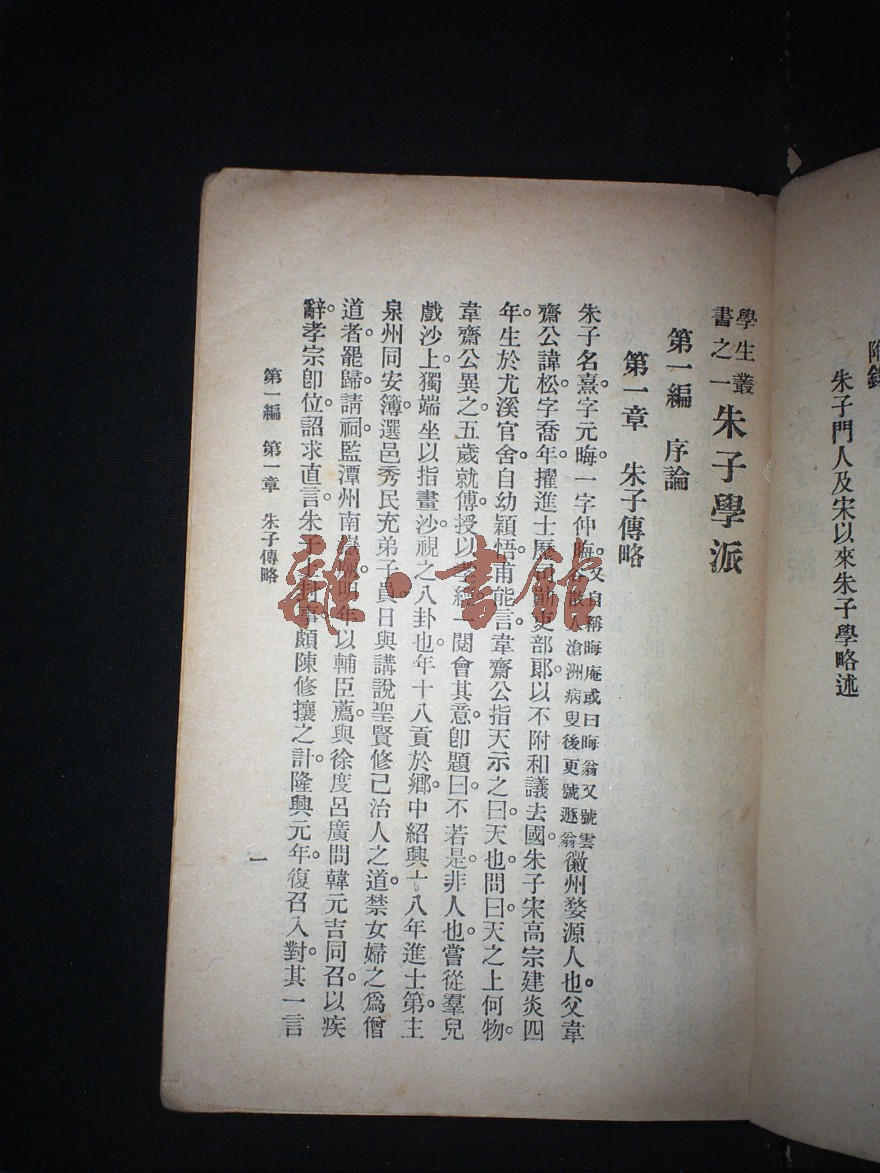 附錄
朱子門人及宋以來朱子學略述
學生叢書之一 朱子學派
第一編 序論
第一章 朱子傳略
朱子名熹。字元晦。一字仲晦。又自稱晦庵或曰晦翁又號雲谷散人滄洲病叟後更號遯翁徽州婺源人也。父韋
齋公諱松。字喬年。擢進士。歷司勳吏部郎。以不附和議去國。朱子宋高宗建炎四
年。生於尤溪官舍。自幼穎悟。甫能言。韋齋公指天示之曰。天也。問曰。天之上何物。
韋齋公異之。五歲就傅。授以孝經。一閱會其意。卽題曰。不若是。非人也。嘗從羣兒
戲沙上。獨端坐以指畫沙。視之八卦也。年十八貢於鄉。中紹興十八年進士第。主
泉州同安簿。選邑秀民充弟子員。日與講說聖賢修己治人之道。禁女婦之爲僧
道者。罷歸請祠。監潭州南嶽廟。明年以輔臣薦。與徐度呂廣問韓元吉同召。以疾
辭。孝宗卽位。詔求直言。朱子上封事。頗陳修攘之計。隆興元年。復召入對。其一言
第一編 第一章 朱子傳略
一
雜·書館